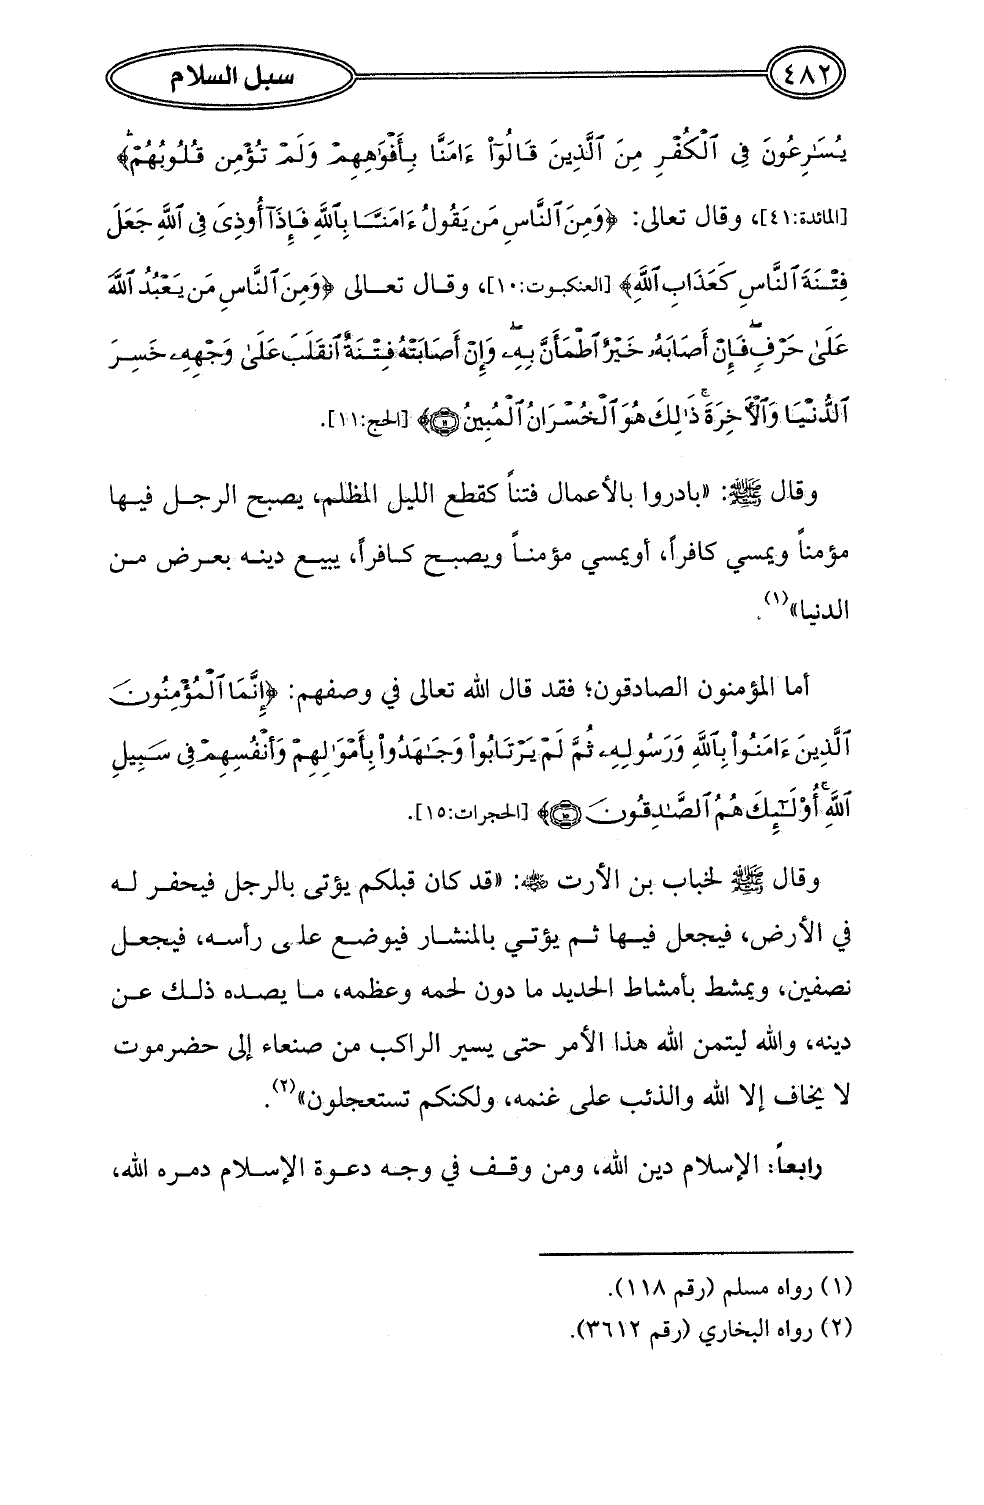 ٤٨٢ سبل السلام
يُسَٰرِعُونَ فِى ٱلۡكُفۡرِ مِنَ ٱلَّذِينَ قَالُوٓاْ ءَامَنَّا بِأَفۡوَٰهِهِمۡ وَلَمۡ تُؤۡمِن قُلُوبُهُمۡۛ﴾
[المائدة:٤١]، وقال تعالى: ﴿وَمِنَ ٱلنَّاسِ مَن يَقُولُ ءَامَنَّا بِٱللَّهِ فَإِذَآ أُوذِىَ فِى ٱللَّهِ جَعَلَ
فِتۡنَةَ ٱلنَّاسِ كَعَذَابِ ٱللَّهِ﴾ [العنكبوت:١٠]، وقال تعالى ﴿وَمِنَ ٱلنَّاسِ مَن يَعۡبُدُ ٱللَّهَ
عَلَىٰ حَرۡفٖۖ فَإِنۡ أَصَابَهُۥ خَيۡرٌ ٱطۡمَأَنَّ بِهِۦۖ وَإِنۡ أَصَابَتۡهُ فِتۡنَةٌ ٱنقَلَبَ عَلَىٰ وَجۡهِهِۦ خَسِرَ
ٱلدُّنۡيَا وَٱلۡأَخِرَةَۚ ذَٰلِكَ هُوَ ٱلۡخُسۡرَانُ ٱلۡمُبِينُ ١١﴾ [الحج:١١].
وقال ﷺ: «بادروا بالأعمال فتناً كقطع الليل المظلم، يصبح الرجل فيها
مؤمناً ويمسي كافراً، أويمسي مؤمناً ويصبح كافراً، يبيع دينه بعرض من
الدنيا»(١).
أما المؤمنون الصادقون؛ فقد قال الله تعالى في وصفهم: ﴿إِنَّمَا ٱلۡمُؤۡمِنُونَ
ٱلَّذِينَ ءَامَنُواْ بِٱللَّهِ وَرَسُولِهِۦ ثُمَّ لَمۡ يَرۡتَابُواْ وَجَٰهَدُواْ بِأَمۡوَٰلِهِمۡ وَأَنفُسِهِمۡ فِى سَبِيلِ
ٱللَّهِۚ أُوْلَٰٓئِكَ هُمُ ٱلصَّٰدِقُونَ ١٥﴾ [الحجرات:١٥].
وقال ﷺ لخباب بن الأرت رضي الله عنه: «قد كان قبلكم يؤتى بالرجل فيحفر له
في الأرض، فيجعل فيها ثم يؤتي بالمنشار فيوضع على رأسه، فيجعل
نصفين، ويمشط بأمشاط الحديد ما دون لحمه وعظمه، ما يصده ذلك عن
دينه، والله ليتمن الله هذا الأمر حتى يسير الراكب من صنعاء إلى حضرموت
لا يخاف إلا الله والذئب على غنمه، ولكنكم تستعجلون»(٢).
رابعاً: الإسلام دين الله، ومن وقف في وجه دعوة الإسلام دمره الله،
(١) رواه مسلم (رقم ١١٨).
(٢) رواه البخاري (رقم ٣٦١٢).